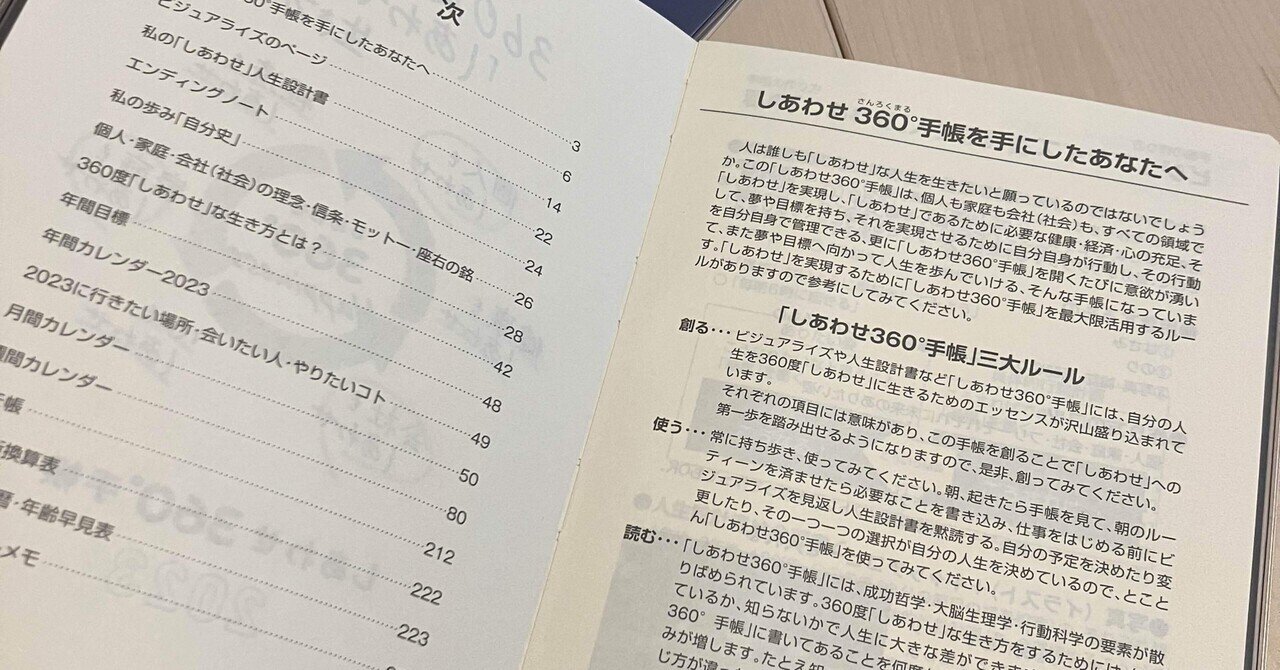 次
360°手帳を手にしたあなたへ 3
ビジュアライズのページ 6
私の「しあわせ」人生設計書 14
エンディングノート 22
私の歩み「自分史」 24
個人・家庭・会社(社会)の理念・信条・モットー・座右の銘 26
360度「しあわせ」な生き方とは? 28
年間目標 42
年間カレンダー2023 48
2023に行きたい場所・会いたい人・やりたいコト 49
月間カレンダー 50
週間カレンダー 80
帳 212
換算表 222
暦・年齢早見表 223
メモ
さんろくまる
しあわせ 360°手帳を手にしたあなたへ
人は誰しも「しあわせ」な人生を生きたいと願っているのではないでしょう
か。この「しあわせ360°手帳」は、個人も家庭も会社(社会)も、すべての領域で
「しあわせ」を実現し、「しあわせ」であるために必要な健康・経済・心の充足、そ
して、夢や目標を持ち、それを実現させるために自分自身が行動し、その行動
を自分自身で管理できる、更に「しあわせ360°手帳」を開くたびに意欲が湧い
て、また夢や目標へ向かって人生を歩んでいける、そんな手帳になっていま
す。「しあわせ」を実現するために「しあわせ360°手帳」を最大限活用するルー
ルがありますので参考にしてみてください。
「しあわせ360°手帳」三大ルール
創る・・・ビジュアライズや人生設計書など「しあわせ360°手帳」には、自分の人
生を360度「しあわせ」に生きるためのエッセンスが沢山盛り込まれて
います。
それぞれの項目には意味があり、この手帳を創ることで「しあわせ」への
第一歩を踏み出せるようになりますので、是非、創ってみてください。
使う・・・常に持ち歩き、使ってみてください。朝、起きたら手帳を見て、朝のルー
ティーンを済ませたら必要なことを書き込み、仕事をはじめる前にビ
ジュアライズを見返し人生設計書を黙読する。自分の予定を決めたり変
更したり、その一つ一つの選択が自分の人生を決めているので、とこと
ん「しあわせ360°手帳」を使ってみてください。
読む・・・「しあわせ360°手帳」には、成功哲学・大脳生理学・行動科学の要素が散
りばめられています。360度「しあわせ」な生き方をするためには、
ているか、知らないかで人生に大きな差ができ
360°手帳」に書いてあることを何度
みが増します。たとえ
じ方が違っ